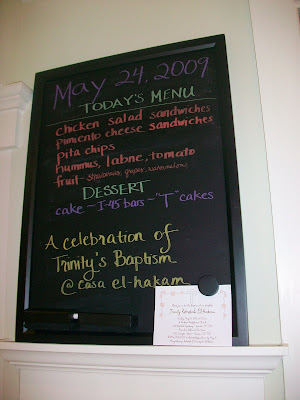 May 24, 2009
TODAY'S MENU
chicken salad sandwiches
pimiento cheese sandwiches
pita chips
hummus, labne, tomato
fruit - strawberries, grapes, watermelon
DESSERT
cake - I-45 bars - "T" cakes
A celebration of
Trinity's Baptism
@ casa el-hakam